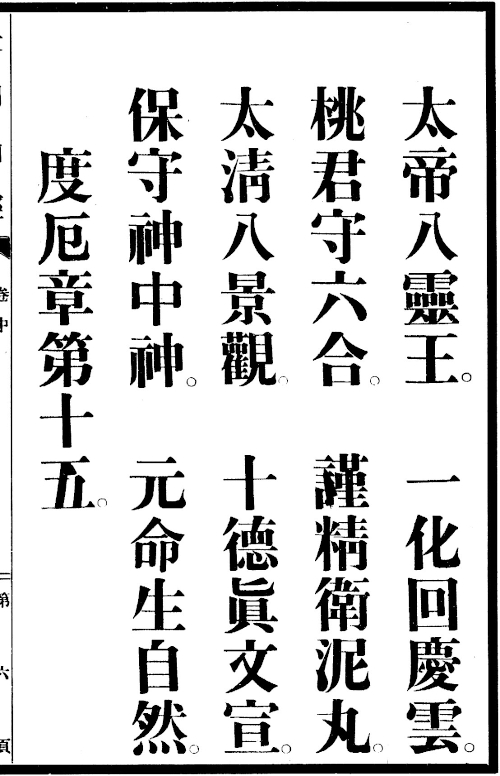 太帝八靈王。　一化回慶雲。
桃君守六合。　謹精衛泥丸。
太淸八景觀。　十德眞文宣。
保守神中神。　元命生自然。
度厄章第十五。
卷中
第六頁